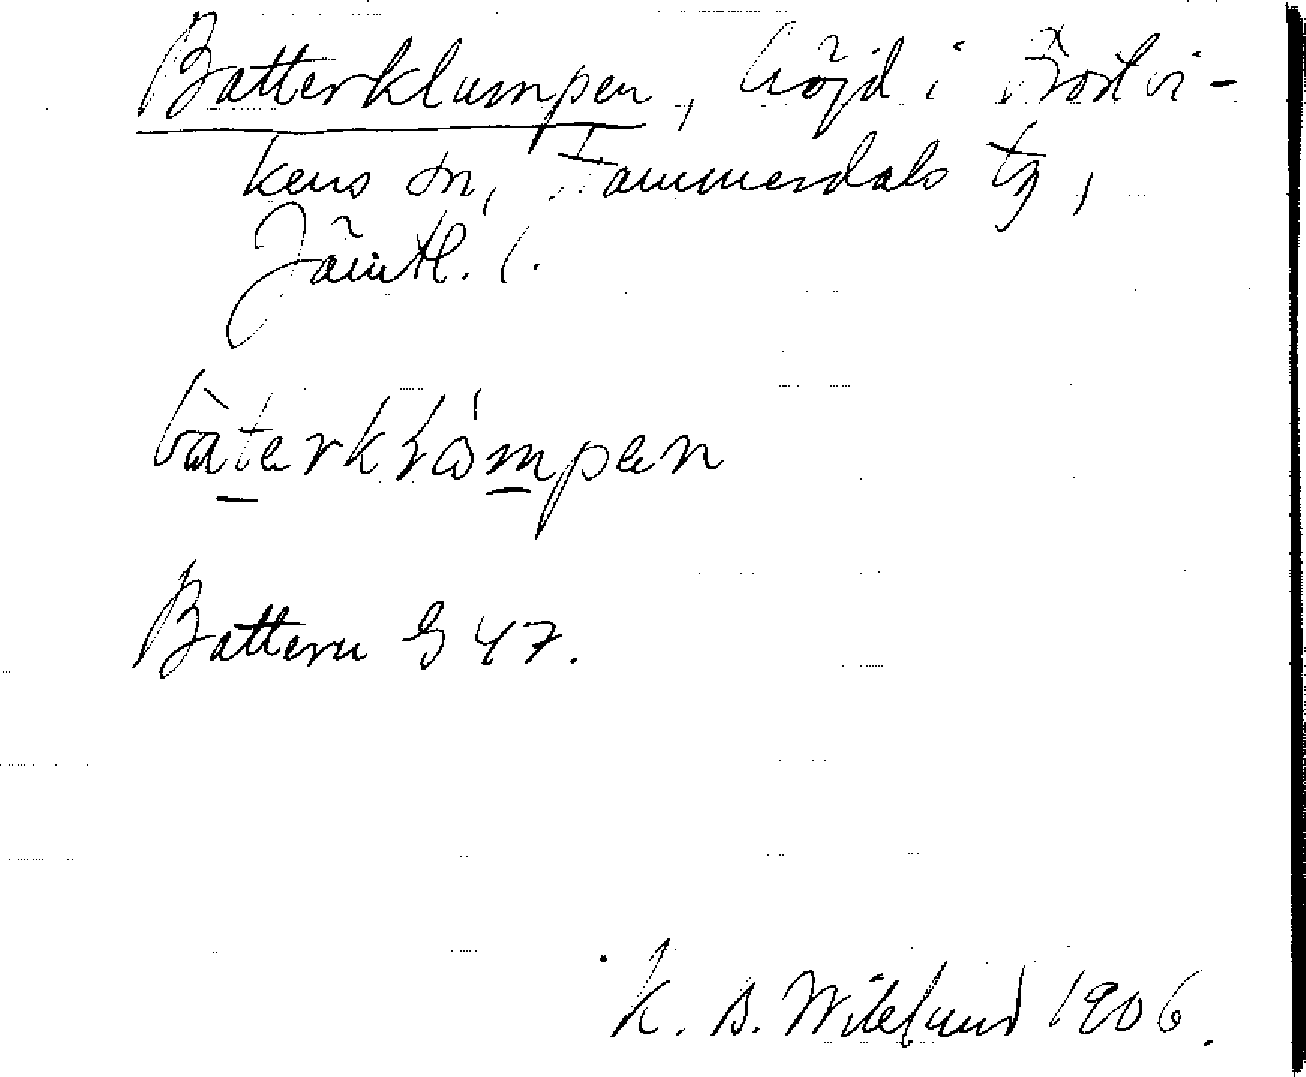 Batterklumpen, höjd i Frostvi-
kens sn, Hammerdals tg,
Jämtl. l.
bàterklómpen
Battern G 47.
K. B. Wiklund 1906.